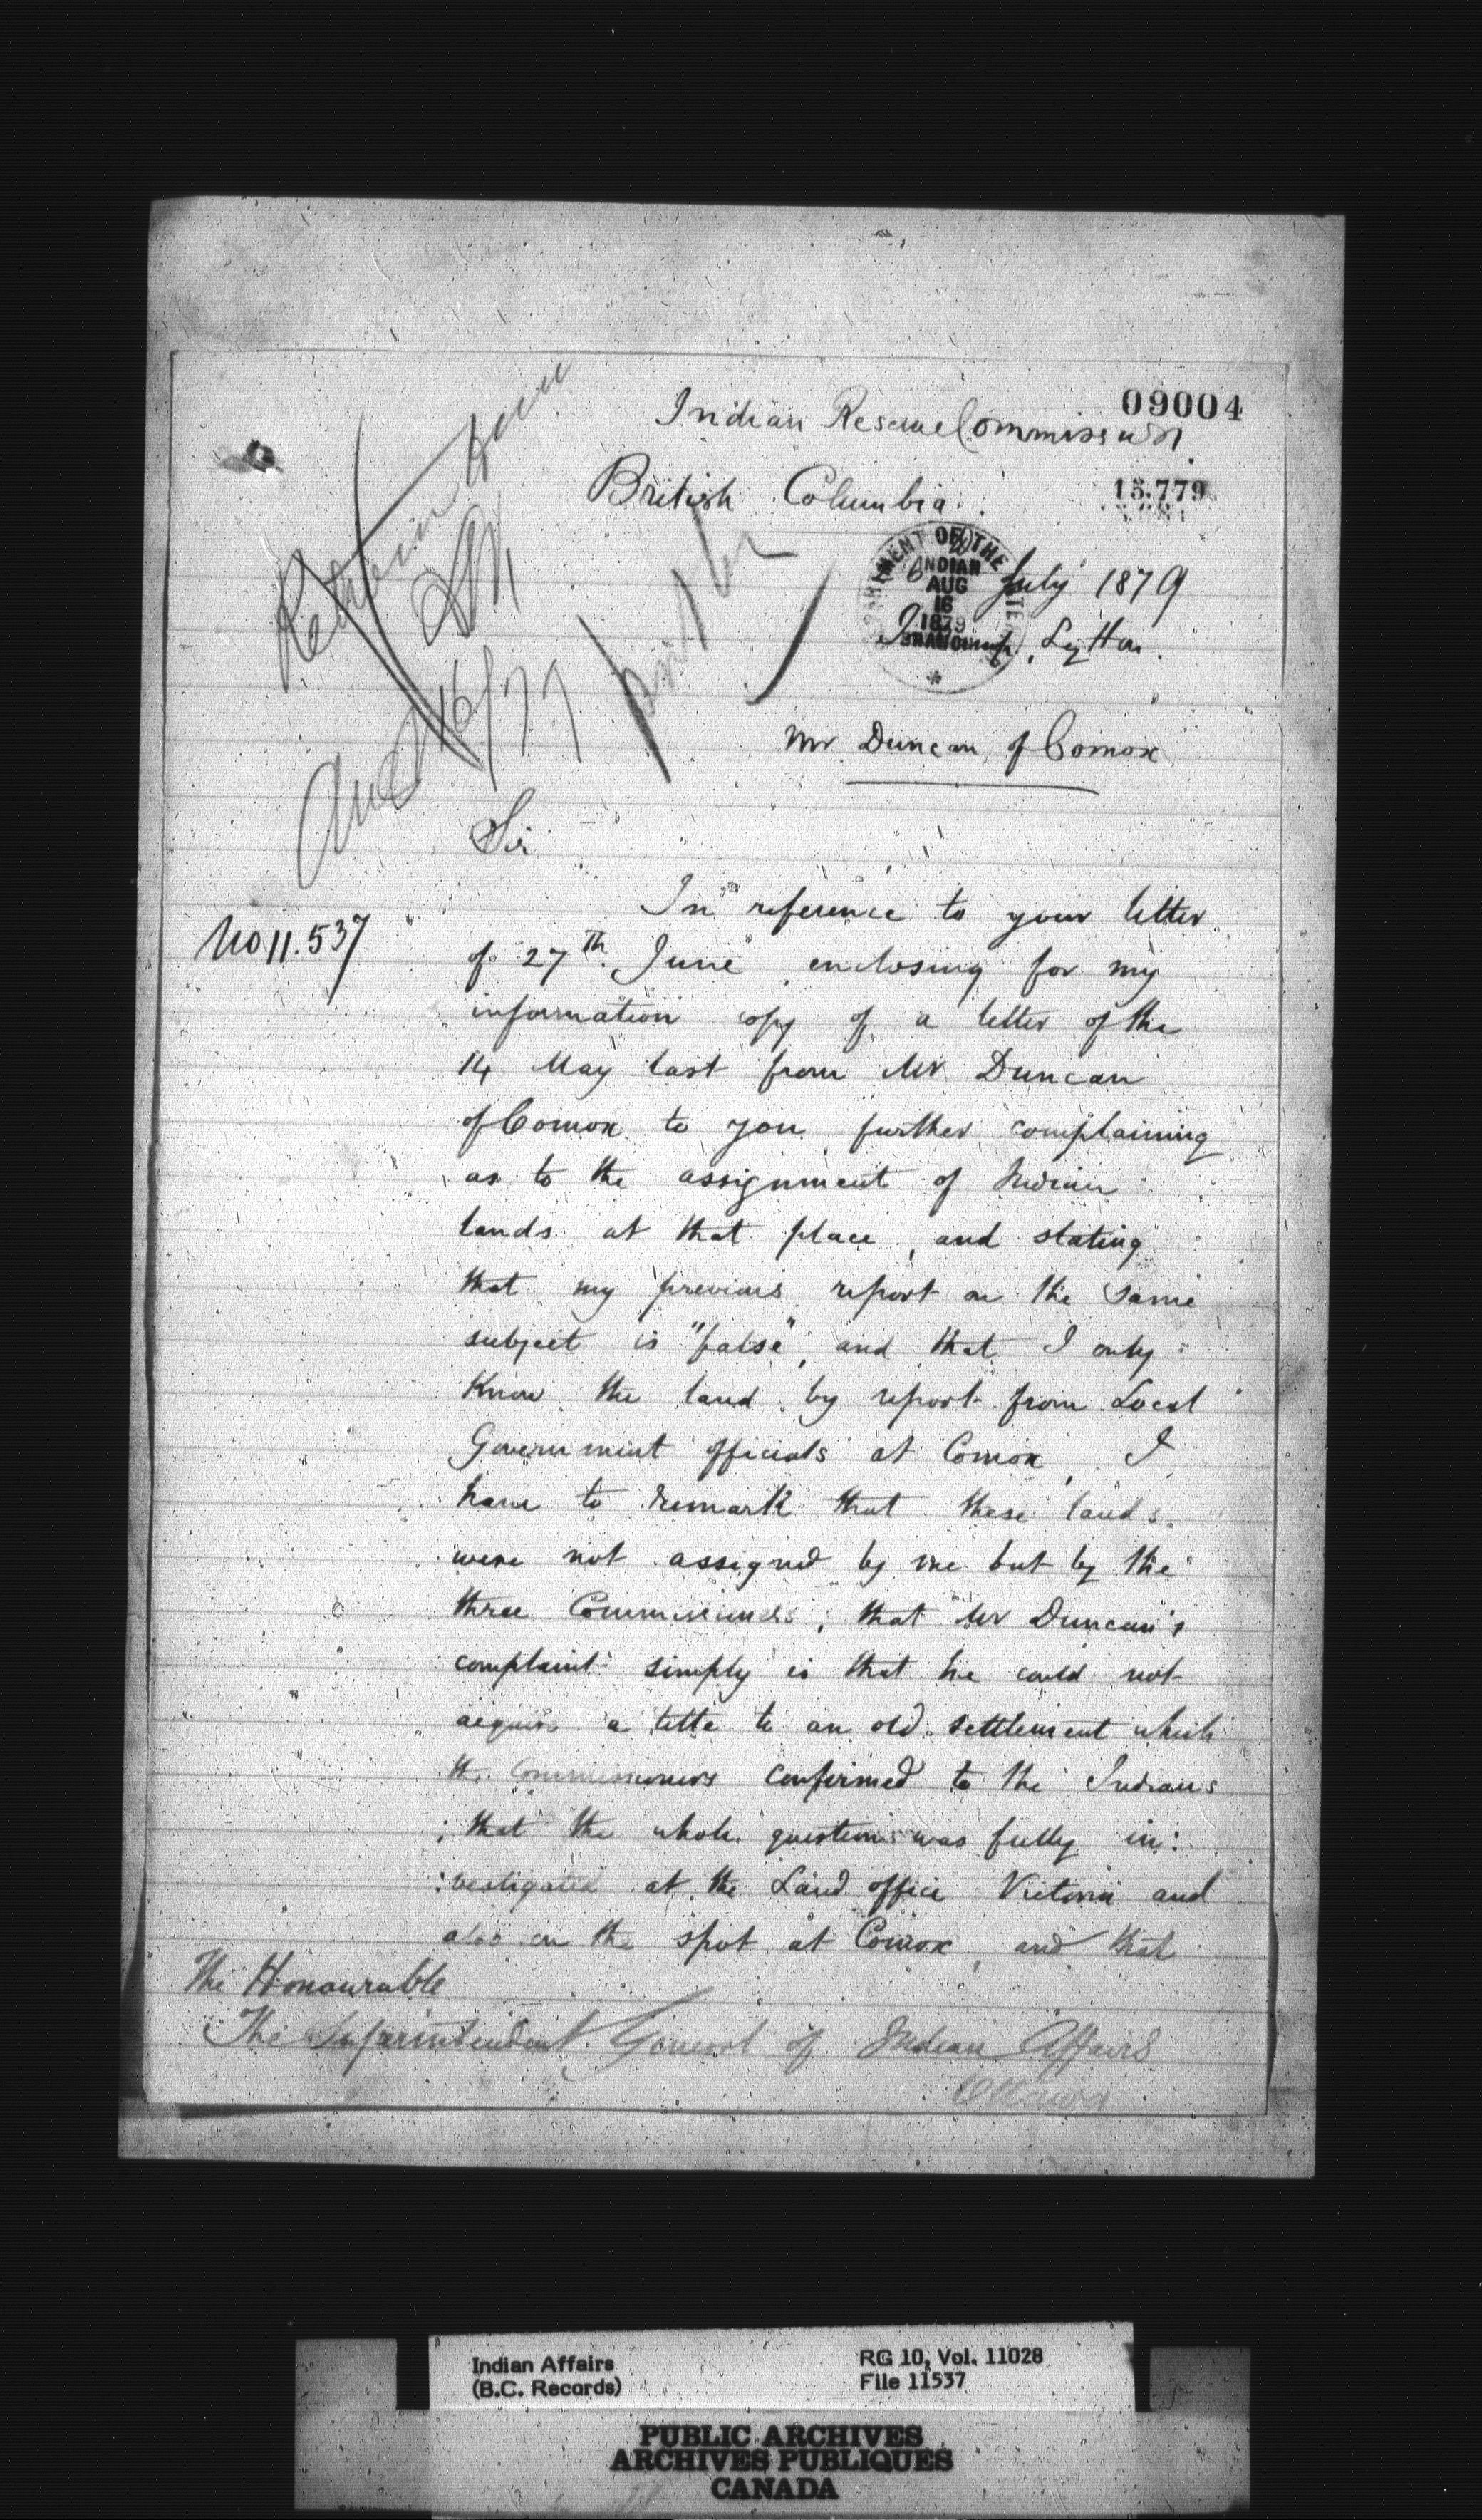 09004
Indian Reserve Commission
British Columbia
15.779
DEPARTMENT OF THE INTERIOR
INDIAN
AUG
16
1879
BRANCH
July 1879
Lytton.
Aug 16/79
Mr Duncan of Comox
Sir
No 11.537
In reference to your letter
of 27th June enclosing for my
information copy of a letter of the
14 May last from Mr Duncan
of Comox to you further complaining
as to the assignment of Indian
lands at that place, and stating
that my previous report on the same
subject is "false", and that I only
know the land by report from Local
Government officials at Comox, I
have to remark that these lands
were not assigned by me but by the
three Commissioners; that Mr Duncan's
complaint simply is that he could not
acquire a title to an old settlement which
the Commissioners confirmed to the Indians
; that the whole question was fully in:
:vestigated at the Land office Victoria and
also on the spot at Comox, and that
The Honourable
The Superintendent General of Indian Affairs
Ottawa
Indian Affairs
(B.C. Records)
RG 10, Vol. 11028
File 11537
PUBLIC ARCHIVES
ARCHIVES PUBLIQUES
CANADA